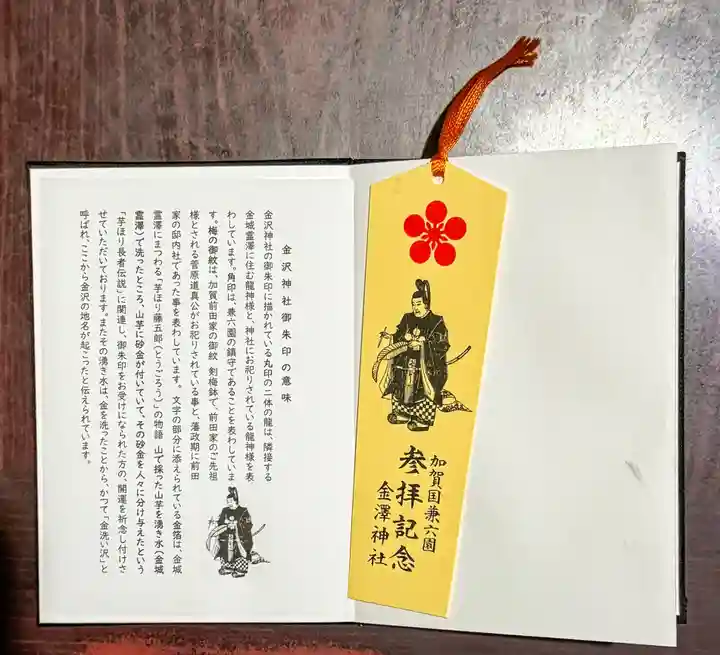 金沢神社御朱印の意味
金沢神社の御朱印に描かれている丸印の二体の龍は、隣接する
金城霊澤に住む龍神様と、神社にお祀りされている龍神様を表
わしています。角印は、兼六園の鎮守であることを表わしていま
す。梅の御紋は、加賀前田家の御紋 剣梅鉢で、前田家のご先祖
様とされる菅原道真公がお祀りされている事と、藩政期に前田
家の邸内社であった事を表わしています。文字の部分に添えられている金箔は、金城
霊澤にまつわる「芋ほり藤五郎（とうごろう）」の物語 山で採った山芋を湧き水（金城
霊澤）で洗ったところ、山芋に砂金が付いていて、その砂金を人々に分け与えたという
「芋ほり長者伝説」に関連し、御朱印をお受けになられた方の、開運を祈念し付けさ
せていただいております。またその湧き水は、金を洗ったことから、かつて「金洗い沢」と
呼ばれ、ここから金沢の地名が起こったと伝えられています。
加賀国兼六園
参拝記念
金澤神社